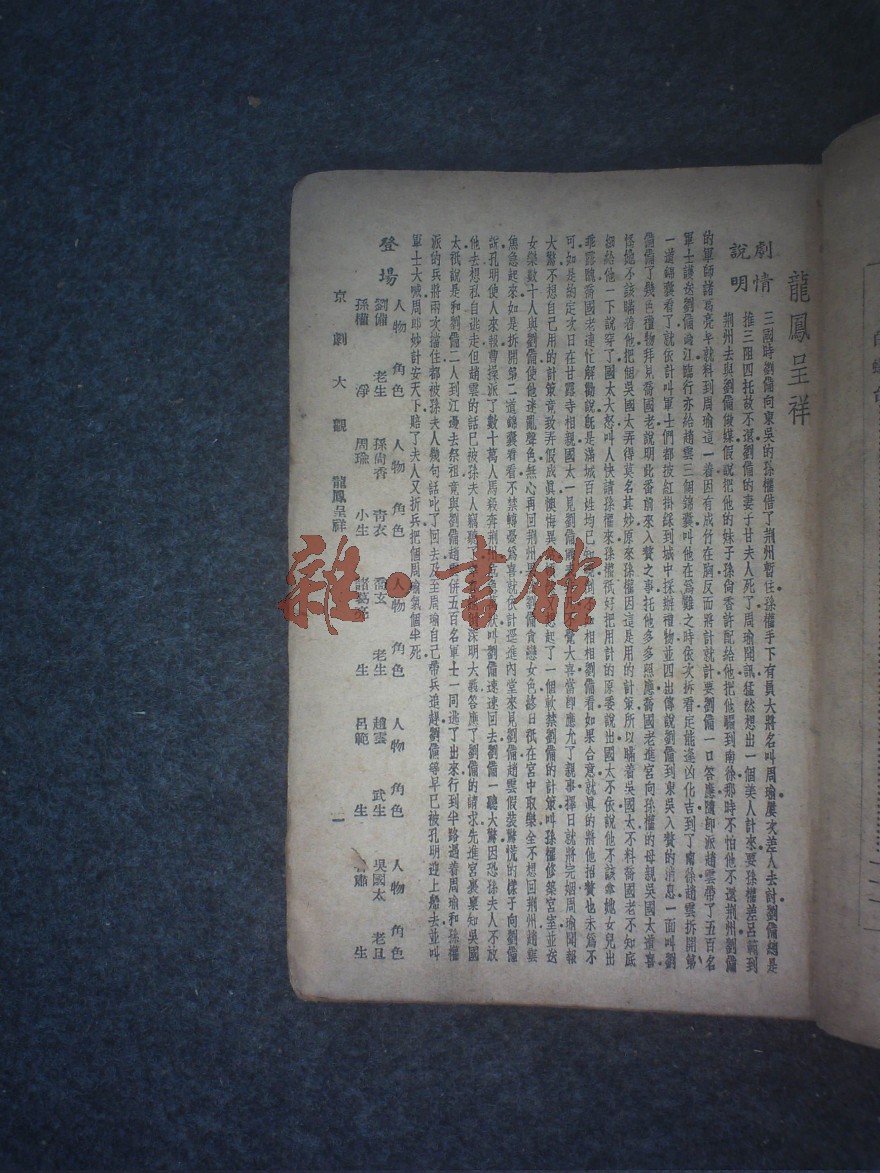 龍鳳呈祥
劇情
說明
三國時劉備向東吳的孫權借了荆州暫住孫權手下有員大將名叫周瑜屢次差人去討劉備總是
推三阻四托故不還劉備的妻子甘夫人死了周瑜聞訊猛然想出一個美人計來要孫權差呂範到
荆州去與劉備做媒假說把他的妹子孫尙香許配給他把他騙到南徐那時不怕他不還荆州劉備
的軍師諸葛亮早就料到周瑜這一着因有成竹在胸反而將計就計要劉備一口答應隨卽派趙雲帶了五百名
軍士護送劉備過江臨行亦給趙雲三個錦囊叫他在爲難之時依次拆看定能逢凶化吉到了南徐趙雲拆開第
一道錦囊看了就依計叫軍士們都披紅掛綵到城中採辦禮物並四出傳說劉備到東吳入贅的消息一面叫劉
備備了幾色禮物拜見喬國老說明此番前來入贅之事托他多多照應喬國老進宮向孫權的母親吳國太道喜
怪她不該瞞着他把個吳國太弄得莫名其妙原來孫權因這是用的計策所以瞞着吳國太不料喬國老不知底
細給他一下說穿了國太大怒叫人快請孫權來孫權祇好把用計的原委說出國太不依說他不該拿她女兒出
乖露醜喬國老連忙解勸說旣是滿城百姓均已知 到 相相劉備看如果合意就眞的將他招贅也未爲不
可如是約定次日在甘露寺相親國太一見劉備 不覺大喜當卽應允了親事擇日就將完姻周瑜聞報
大驚不想自己用的計策竟致弄假成眞懊悔異 起了一個軟禁劉備的計策叫孫權修築宮室並送
女樂數十人與劉備使他迷亂聲色無心再回荆州 劉備貪戀女色終日祇在宮中取樂全不想回荆州趙雲
焦急起來如是拆開第二道錦囊看看不禁轉憂爲喜就依計逕進內堂來見劉備趙雲假裝驚慌的樣子向劉備
說孔明使人來報曹操派了數十萬人馬殺奔荆州 叫劉備速速回去劉備一聽大驚因恐孫夫人不放
他去想私自逃走但趙雲的話已被孫夫人竊聽了 深明大義答應了劉備的請求先進宮稟知吳國
太祇說是和劉備二人到江邊去祭祖竟與劉備趙雲併五百名軍士一同逃了出來行到半路遇着周瑜和孫權
派的兵將兩次擋住都被孫夫人幾句話叱了回去及至周瑜自己帶兵追趕劉備等早已被孔明迎上船去並叫
軍士大喊周郎妙計安天下賠了夫人又折兵把個周瑜氣個半死
登場
人物 角色 人物 角色 人物 角色 人物 角色 人物 角色
劉備 老生 孫尙香 靑衣 喬玄 老生 趙雲 武生 吳國太 老旦
孫權 淨 周瑜 小生 諸葛亮 生 呂範 生 肅 生
京劇大觀 龍鳳呈祥 二
雜·書館